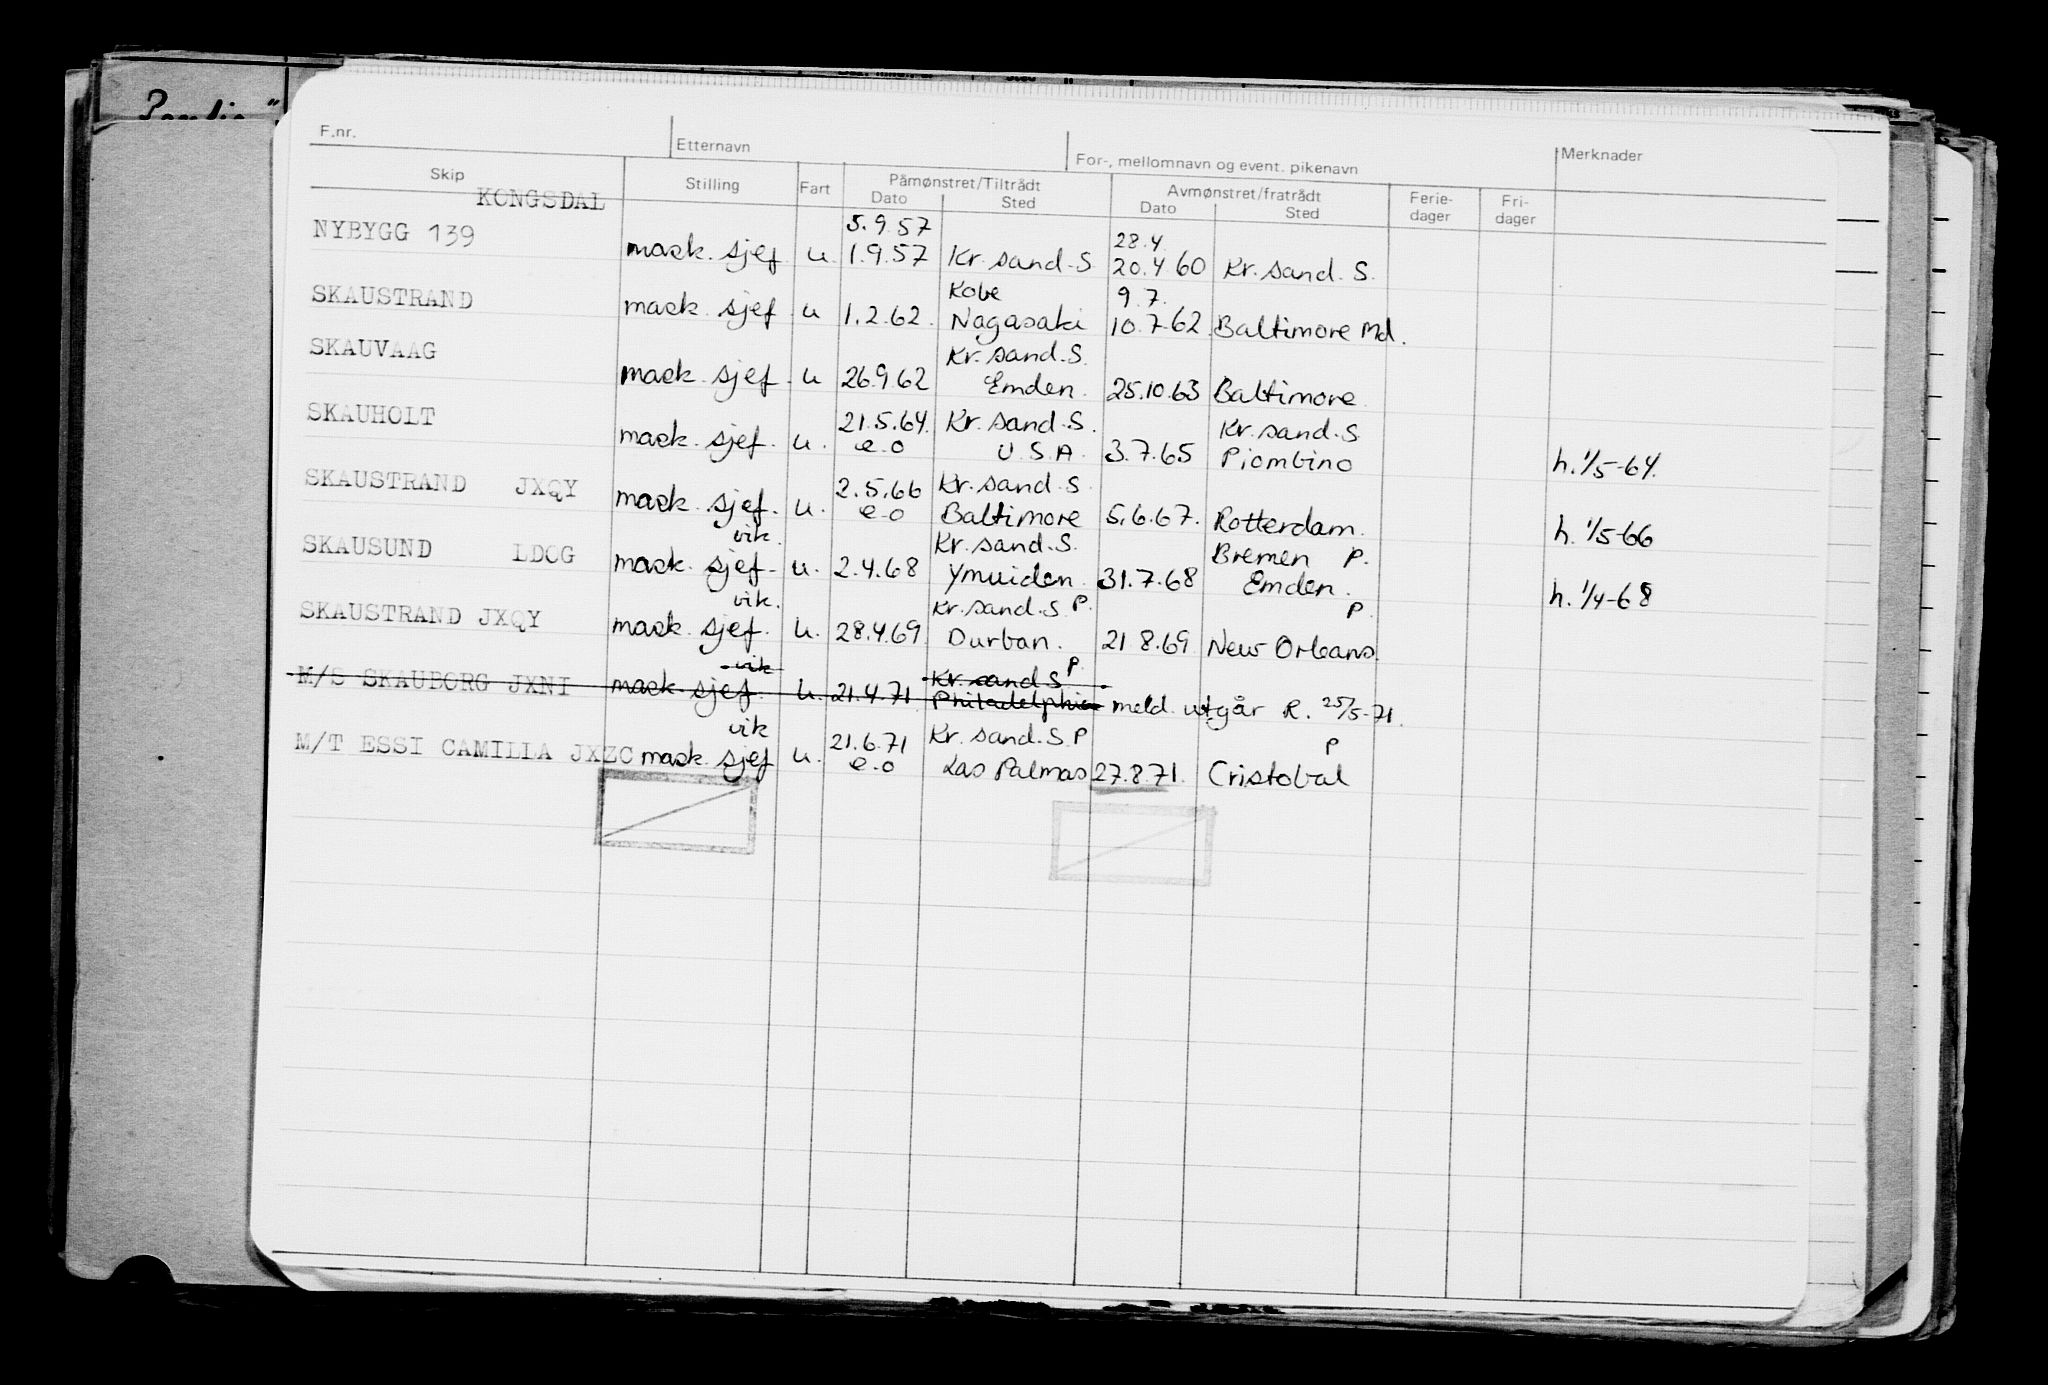 F.nr.
Etternavn
For-, mellomnavn og event. pikenavn
Merknader
Skip
Stilling
Fart
Påmønstret/Tiltrådt
Dato
Sted
Avmønstret/fratrådt
Dato
Sted
Ferie-
dager
Fri-
dager
KONGSDAL
5.9.57
28.4.
NYBYGG 139 mask. sjef u. 1.9.57 Kr. sand. S 20.4.60 Kr. sand. S.
Kobe 9.7.
SKAUSTRAND mask. sjef u 1.2.62. Nagasaki 10.7.62. Baltimore Md.
Kr. sand. S.
SKAUVAAG mask. sjef. u 26.9.62 Emden. 25.10.63 Baltimore.
21.5.64. Kr. sand. S. Kr. sand. S
SKAUHOLT mask. sjef. u. e.o U.S.A. 3.7.65 Piombino h. 1/5-64.
2.5.66 Kr. sand. S
SKAUSTRAND JXQY mask. sjef. u. e.o Baltimore 5.6.67. Rotterdam. h. 1/5-66
vik. Kr. sand. S. Bremen P.
SKAUSUND LDOG mask. sjef. u. 2.4.68 Ymuiden. 31.7.68 Emden. h. 1/4-68
vik. Kr. sand. S P. P.
SKAUSTRAND JXQY mask. sjef. u. 28.4.69. Durban. 21.8.69 New Orleans.
vik Kr. sand S P.
M/S SKAUBORG JXNI mask. sjef. u. 21.4.71 Philadelphia meld. utgår R. 25/5-71.
vik 21.6.71 Kr. sand. S. P P
M/T ESSI CAMILLA JXZC mask. sjef u. e.o Las Palmas 27.8.71. Cristobal